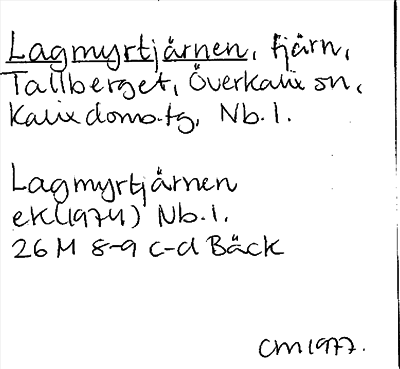 Lagmyrtjärnen, tjärn,
Tallberget, Överkalix sn,
Kalix doms.tg, Nb.l.
Lagmyrtjärnen
ek(1974) Nb.l.
26 M 8-9 c-d Bäck
CM1977.